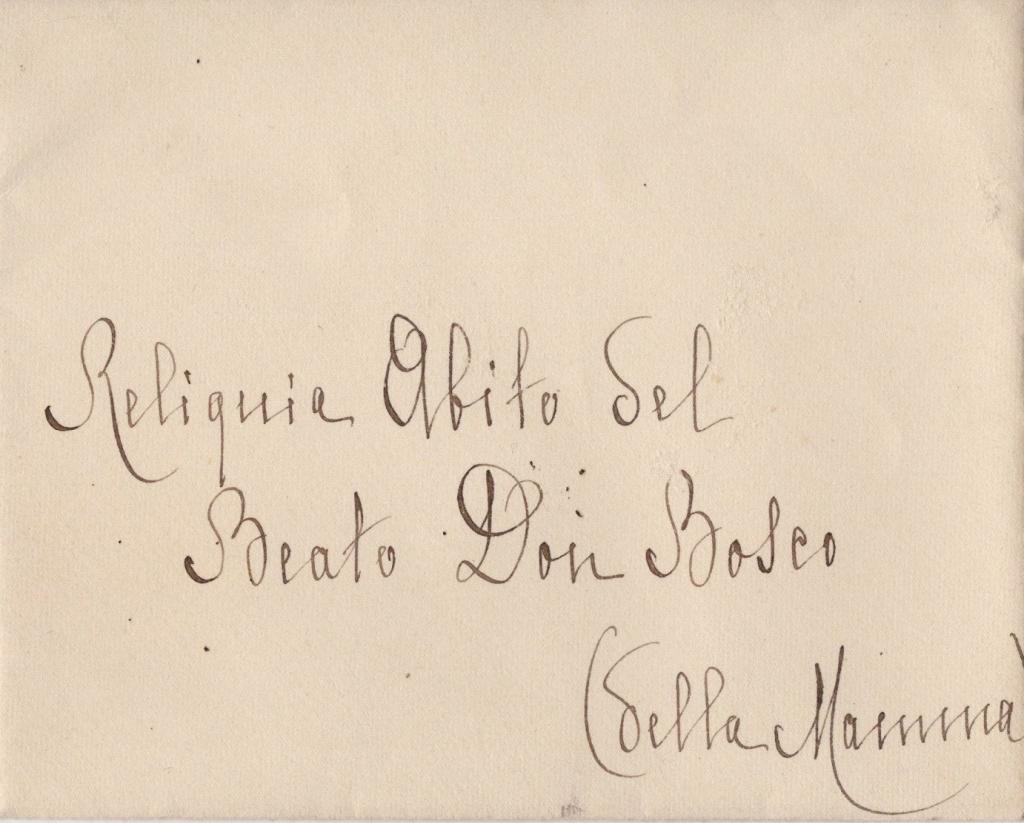 Reliquia Abito del
Beato Don Bosco
(della Mamma)